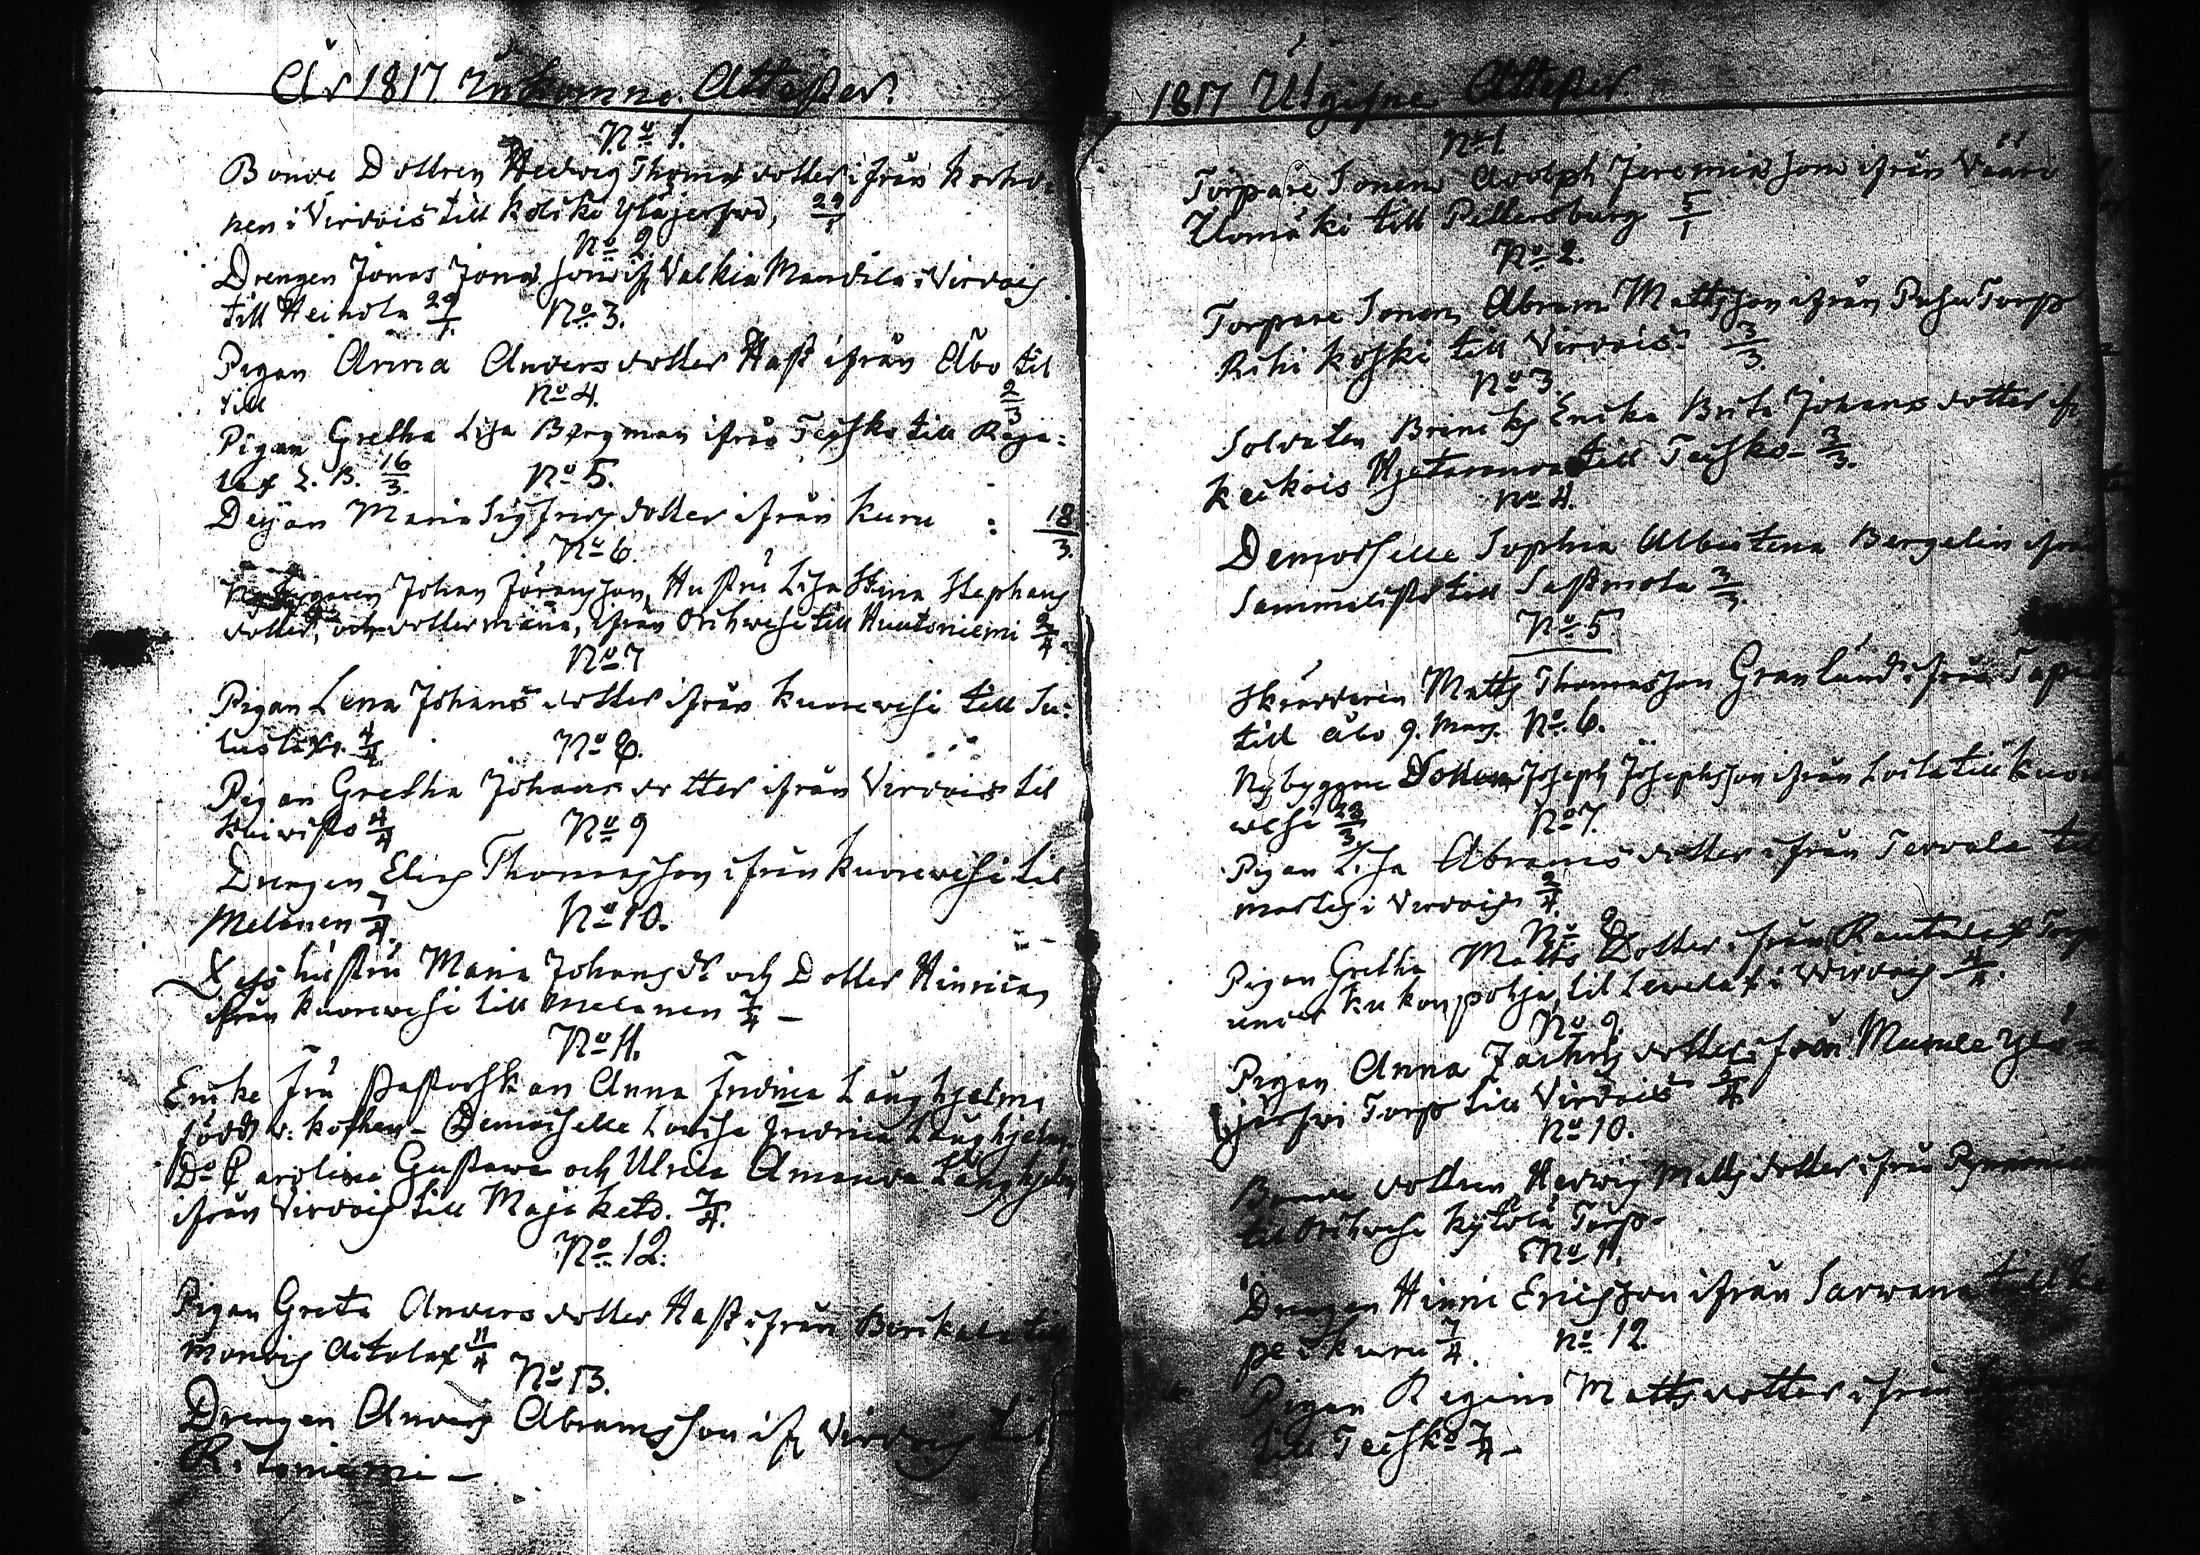 År 1817. Inkomne Attester.
No 1.
Bonde Dottren Hedwig Thomas dotter ifrån Korho-
nen i Virdois till Koiski Yläjerfwi, 29/1
No 2.
Drengen Jonas Jonas Son if. Valkia Mandila i Virdois
till Heinola 29/1.
No 3.
Pigan Anna Anders dotter Hast ifrån Åbo til
till 2/3
No 4.
Pigan Gretha Lisa Bergman ifrån Teisko till Raja-
lax L. B. 16/3.
No 5.
Deijan Maria Sigfrids dotter ifrån Kuru : 18/3.
No 6.
Johan Göransson, Hustru Lisa Stina Stephans
dotter, och dotter Maria, ifrån Orihwesi till Huutoniemi 2/4.
No 7
Pigan Lena Johans dotter ifrån Kuorewesi till Su-
4/4
No 8.
Pigan Gretha Johans dotter ifrån Virdois til
Kuivisto 4/4
No 9
Drengen Elias Thomasson ifrån Kuorewesi til
Melanen 7/4.
No 10.
Dess hustru Maria Johans dr och Dotter Hinrica,
ifrån Kuorewesi till Melanen 7/4 –
No 11.
Enke Fru Pastorskan Anna Fredrica Laughjelm
född v. Kothen – Demoiselle Lovisa Fredrica Laughjelm,
Do Carolina Gustawa och Ulrica Amanda Laughjelm
ifrån Virdois till Majaketo. 7/4.
No 12.
Pigan Greta Anders dotter Hast ifrån Borikala till
Monois Aitolax 11/4
No 13.
Drengen Anders Abramsson if. Virdois til
R. toniemi –
1817 Utgifne Attester
No 1
Torpare Sonen Adolph Jeremias Son ifrån Vääri
Ilomäki till Pettersburg 5/1
No 2.
Torpare Sonen Abram Mattsson ifrån Pusu Torp
Riihikoski till Virdois 3/3.
No 3
Soldaten Brinks Enka Brita Johans dotter if.
Keikois till Teisko – 3/3.
No 4.
Demoiselle Sophia Albertina Bergelin ifrån
Sammalisto till Sastmola 3/3.
No 5
Skräddaren Matts Thomasson Granlund ifrån
till Åbo 9. Mars.
No 6.
Nybyggare Sonen Joseph Josephsson ifrån Loila till Kuore
wesi 28/3
No 7.
Pigan Lisa Abrams dotter ifrån Tervala til
Martis i Virdois 2/4.
No 8
Pigan Gretha Matts Dotter ifrån Rautulax Torp
under Kukonpohja, til Lewelax i Virdois 4/4.
No 9.
Pigan Anna Zachris dotter ifrån Murole Ylä-
järfwi Torp till Virdois 5/4
No 10.
Bonde dottren Hedwig Matts dotter ifrån Pynnönimi
till Orihwesi Kytölä Torp –
No 11.
Drengen Hinric Ericsson ifrån Sarwana till Ka
pe i Kuru 7/4.
No 12.
Pigan Regina Matts dotter ifrån
till Teisko 7/4 –